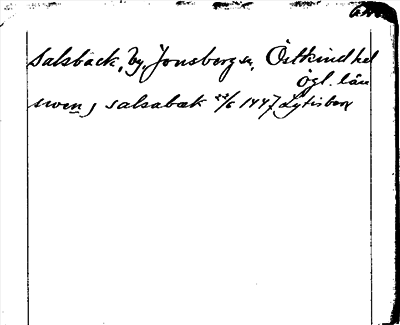 Salsbäck, by, Jonsberg sn, Östkind hd
Ögl. län
swen j salsabæk 22/6 1447